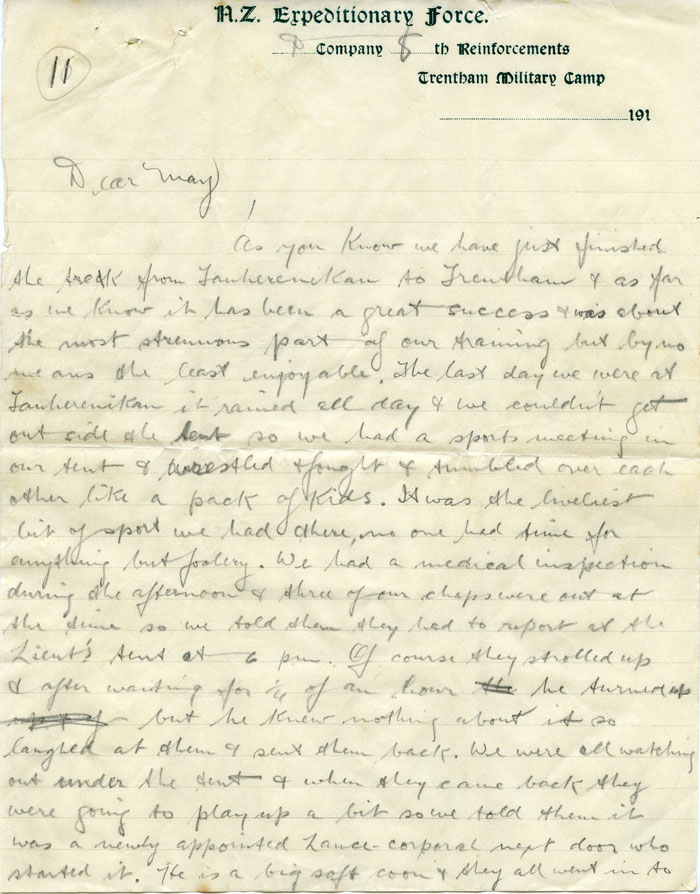 N.Z. Expeditionary Force.
D Company 8 th Reinforcements
Trentham Military Camp
191
11
Dear May
As you know we have just finished
the treck from Tauherenikau to Trentham & as far
as we know it has been a great success & was about
the most strennous part of our training but by no
means the least enjoyable. The last day we were at
Tauherenikau it rained all day & we couldn't get
out side the tent so we had a sports meeting in
our tent & wrestled & fought & tumbled over each
other like a pack of kids. It was the liveliest
bit of sport we had there, no one had time for
anything but foolery. We had a medical inspection
during the afternoon & three of our chaps were out at
the time so we told them they had to report at the
Lieut's tent at 6 pm. Of course they strolled up
& after waiting for 1/4 of an hour he turned up
but he knew nothing about it so
laughed at them & sent them back. We were all watching
out under the tent & when they came back they
were going to play up a bit so we told them it
was a newly appointed Lance-corporal next door who
started it. He is a big soft coon & they all went in to